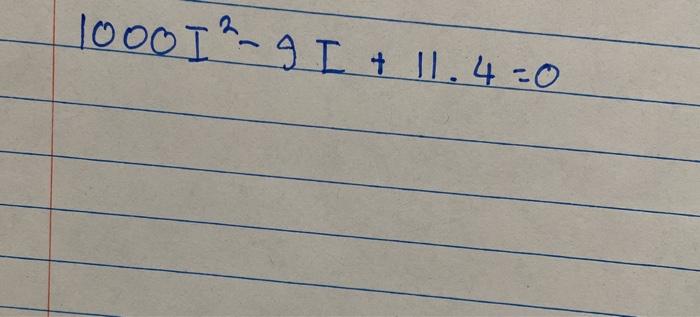 1000I² - 9I + 11.4 = 0